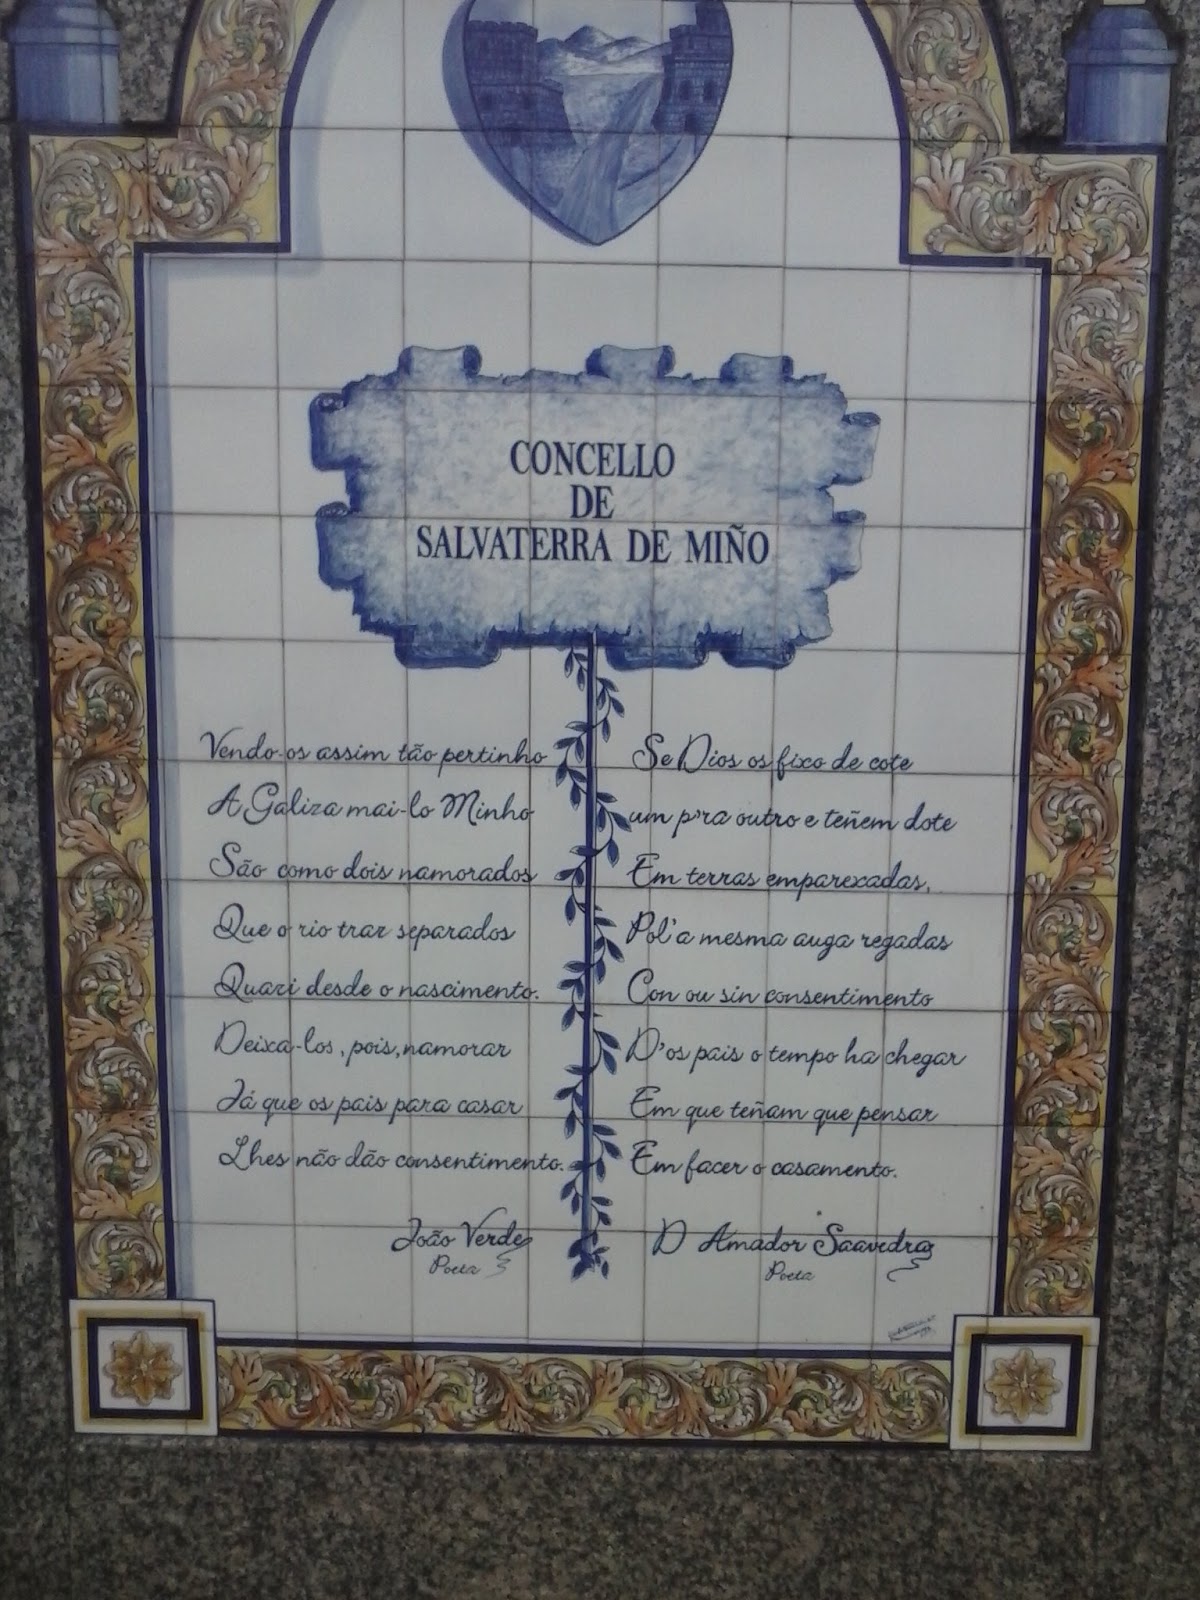 CONCELLO
DE
SALVATERRA DE MIÑO
Vendo-os assim tão pertinho
A Galiza mai-lo Minho
São como dois namorados
Que o rio traz separados
Quazi desde o nascimento.
Deixa-los, pois, namorar
Já que os pais para casar
Lhes não dão consentimento.
João Verde
Poeta
Se Dios os fixo de cote
um p'ra outro e teñem dote
Em terras emparexadas,
Pol'a mesma auga regadas
Con ou sin consentimento
D'os pais o tempo ha chegar
Em que teñam que pensar
Em facer o casamento.
D Amador Saavedra
Poeta